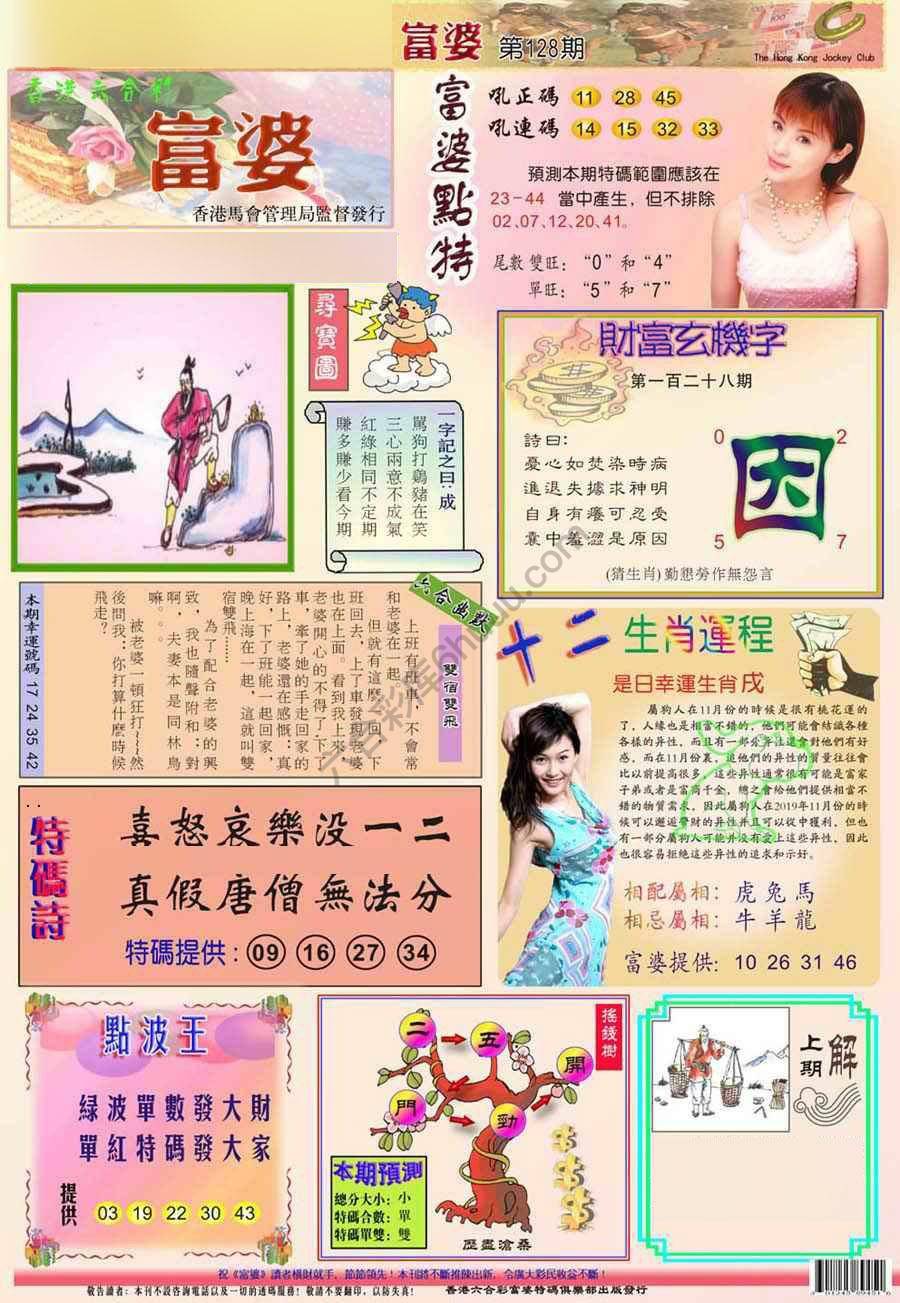 富婆 第128期
The Hong Kong Jockey Club
香港六合彩
富婆
香港馬會管理局監督發行
富婆點特
吼正碼 11 28 45
吼連碼 14 15 32 33
預測本期特碼範圍應該在
23-44 當中產生，但不排除
02、07、12、20、41。
尾數雙旺：“0”和“4”
單旺：“5”和“7”
尋寶圖
一字記之曰：成
罵狗打鷄豬在笑
三心兩意不成氣
紅綠相同不定期
賺多賺少看今期
財富玄機字
第一百二十八期
詩曰：
憂心如焚染時病
進退失據求神明
自身有癢可忍受
囊中羞澀是原因
0 2
因
5 7
(猜生肖)勤懇勞作無怨言
六合幽默
雙宿雙飛
上班有班車，不會常
和老婆在一起
但就有這麼一回，下
班回去，上了車發現老婆
也在上面。看到我上來，
老婆開心的不得了，下了
車，牽了她的手走回家的
路上，老婆還在感慨：真
好，下了班能一起回家，
晚上海在一起，這就叫雙
宿雙飛……
為了配合老婆的興
致，我也隨聲附和：對
啊，夫妻本是同林鳥
嘛。。
被老婆一頓狂打~~~~然
後問我：你打算什麼時候
飛走？
本期幸運號碼 17 24 35 42
十二生肖運程
是日幸運生肖戌
屬狗人在11月份的時候是很有桃花運的
了，人緣也是相當不錯的，他們可能會結識各種
各樣的异性，而且有一部分异性還會對他們有好
感，而在11月份裏，追他們的异性的質量往往會
比以前提高很多，這些异性通常很有可能是富家
子弟或者是富商千金，總之會給他們提供相當不
錯的物質需求，因此屬狗人在2019年11月份的時
候可以邂逅旺財的异性并且可以從中獲利，但也
有一部分屬狗人可能并没有愛上這些异性，因此
也很容易拒絕這些异性的追求和示好。
相配屬相：虎兔馬
相忌屬相：牛羊龍
富婆提供：10 26 31 46
特碼詩
喜怒哀樂没一二
真假唐僧無法分
特碼提供：09 16 27 34
點波王
緑波單數發大財
單紅特碼發大家
提供 03 19 22 30 43
搖錢樹
二 五 開
門 勁
本期預測
總分大小：小
特碼合數：單
特碼單雙：雙
歷盡滄桑
上期解
祝《富婆》讀者橫財就手，節節領先！本刊將不斷推陳出新，令廣大彩民收益不斷！
敬告讀者：本刊不設咨詢電話以及一切的透碼服務！敬請不要翻印，以防失真！
香港六合彩富婆特碼俱樂部出版發行